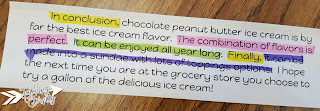 In conclusion, chocolate peanut butter ice cream is by
far the best ice cream flavor. The combination of flavors is
perfect. It can be enjoyed all year long. Finally, it can be
made into a sundae with lots of toppings options. I hope
the next time you are at the grocery store you choose to
try a gallon of the delicious ice cream!